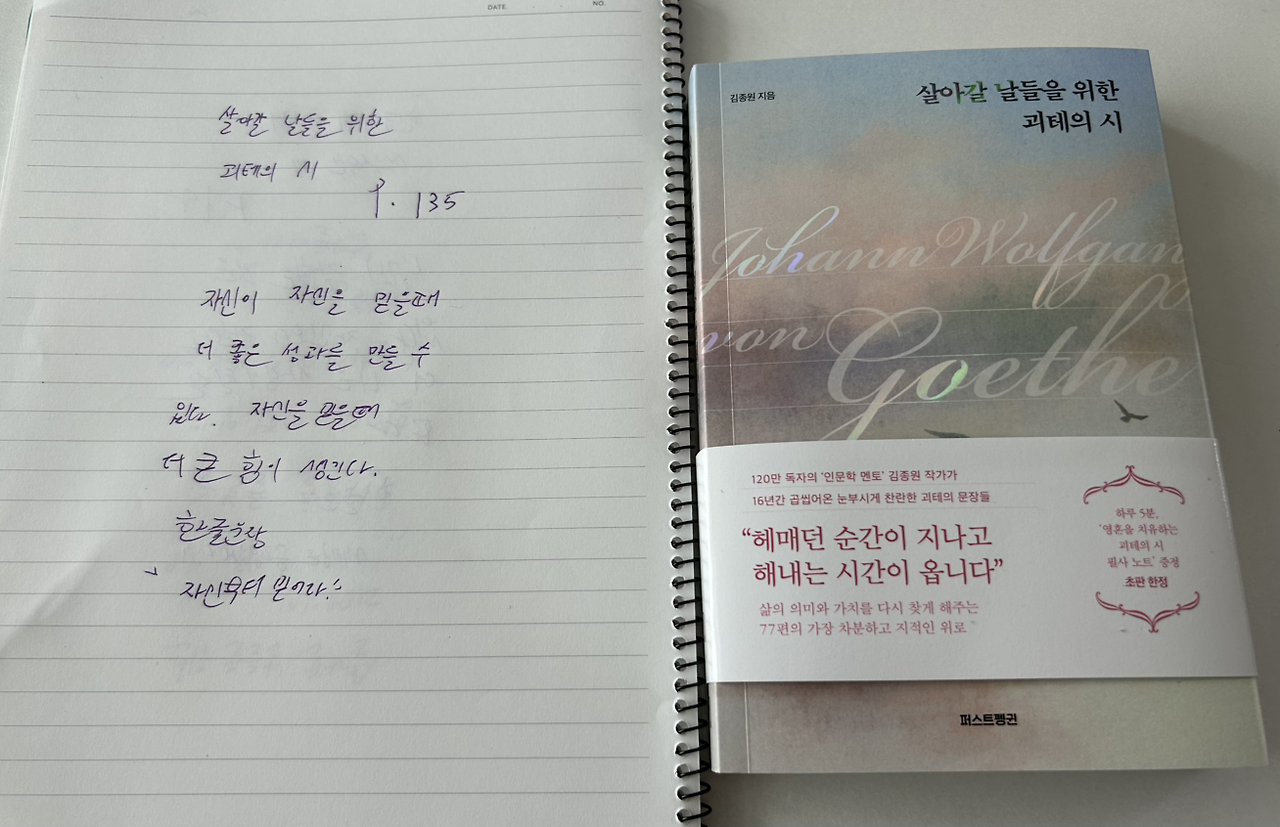 DATE.
NO.
살아갈 날들을 위한
괴테의 시
P. 135
자신이 자신을 믿을때
더 좋은 성과를 만들 수
있다. 자신을 믿을때
더 큰 힘이 생긴다.
한글문장
자신부터 믿어라!
김종원 지음
살아갈 날들을 위한
괴테의 시
Johann Wolfgang
von Goethe
120만 독자의 '인문학 멘토' 김종원 작가가
16년간 곱씹어온 눈부시게 찬란한 괴테의 문장들
“헤매던 순간이 지나고
해내는 시간이 옵니다”
삶의 의미와 가치를 다시 찾게 해주는
77편의 가장 차분하고 지적인 위로
하루 5분,
'영혼을 치유하는
괴테의 시
필사 노트' 증정
초판 한정
퍼스트펭귄